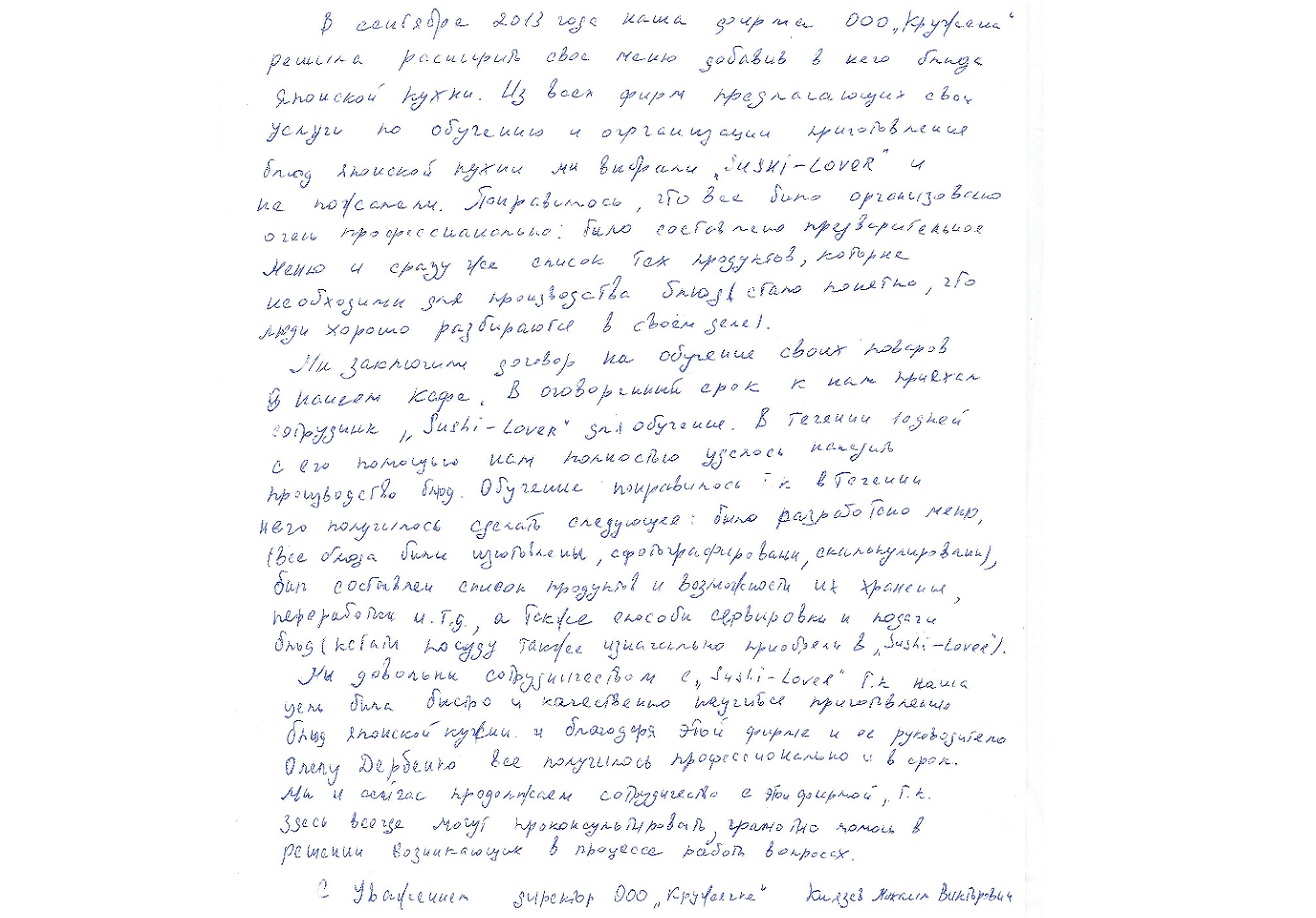 В сентябре 2013 года наша фирма ООО „Кружева"
решила расширить свое меню добавив в него блюда
японской кухни. Из всех фирм предлагающих свои
услуги по обучению и организации приготовления
блюд японской кухни мы выбрали „SUSHI-LOVER" и
не пожалели. Понравилось, что все было организовано
очень профессионально: было составлено предварительное
меню и сразу же список тех продуктов, которые
необходимы для производства блюд (стало понятно, что
люди хорошо разбираются в своем деле).
Мы заключили договор на обучение своих поваров
в нашем кафе. В оговоренный срок к нам приехал
сотрудник „Sushi-Lover" для обучения. В течении 10дней
с его помощью нам полностью удалось наладить
производство блюд. Обучение понравилось т.к. в течении
него получилось сделать следующее: было разработано меню,
(все блюда были изготовлены, сфотографированы, скалькулированы),
был составлен список продуктов и возможности их хранения,
переработки и.т.д., а также способы сервировки и подачи
блюд (кстати посуду также изначально приобрели в „Sushi-Lover").
Мы довольны сотрудничеством с „Sushi-Lover" т.к. наша
цель была быстро и качественно научиться приготовлению
блюд японской кухни. и благодаря этой фирме и ее руководителю
Олегу Дербенко все получилось профессионально и в срок.
Мы и сейчас продолжаем сотрудничество с этой фирмой, т.к.
здесь всегда могут проконсультировать, грамотно помочь в
решении возникающих в процессе работы вопросах.
С Уважением директор ООО „Кружева" Князев Михаил Викторович